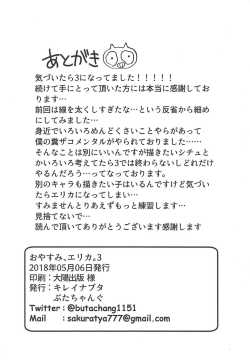 あとがき
気づいたら3になってました！！！！！
続けて手にとって頂いた方には本当に感謝してお
ります…
前回は線を太くしすぎたな…という反省から細め
にしてみました…
身近でいろいろめんどくさいことやらがあって
僕の糞ザコメンタルがやられておりました……
そんなことは別にいいんですが描きたいシチュと
かいろいろ考えてたら3では終わらないしどれだけ
やるんだろう…ってなっております。
別のキャラも描きたい子はいるんですけど気づい
たらエリカになってます……
すみませんとりあえずもっと練習します…
見捨てないで…
読んで頂いてありがとうございます感謝します
おやすみ、エリカ。3
2018年05月06日発行
印刷：大陽出版 様
発行：キレイナブタ
ぶたちゃんぐ
Twitter：@butachang1151
Mail　：sakuratya777@gmail.com